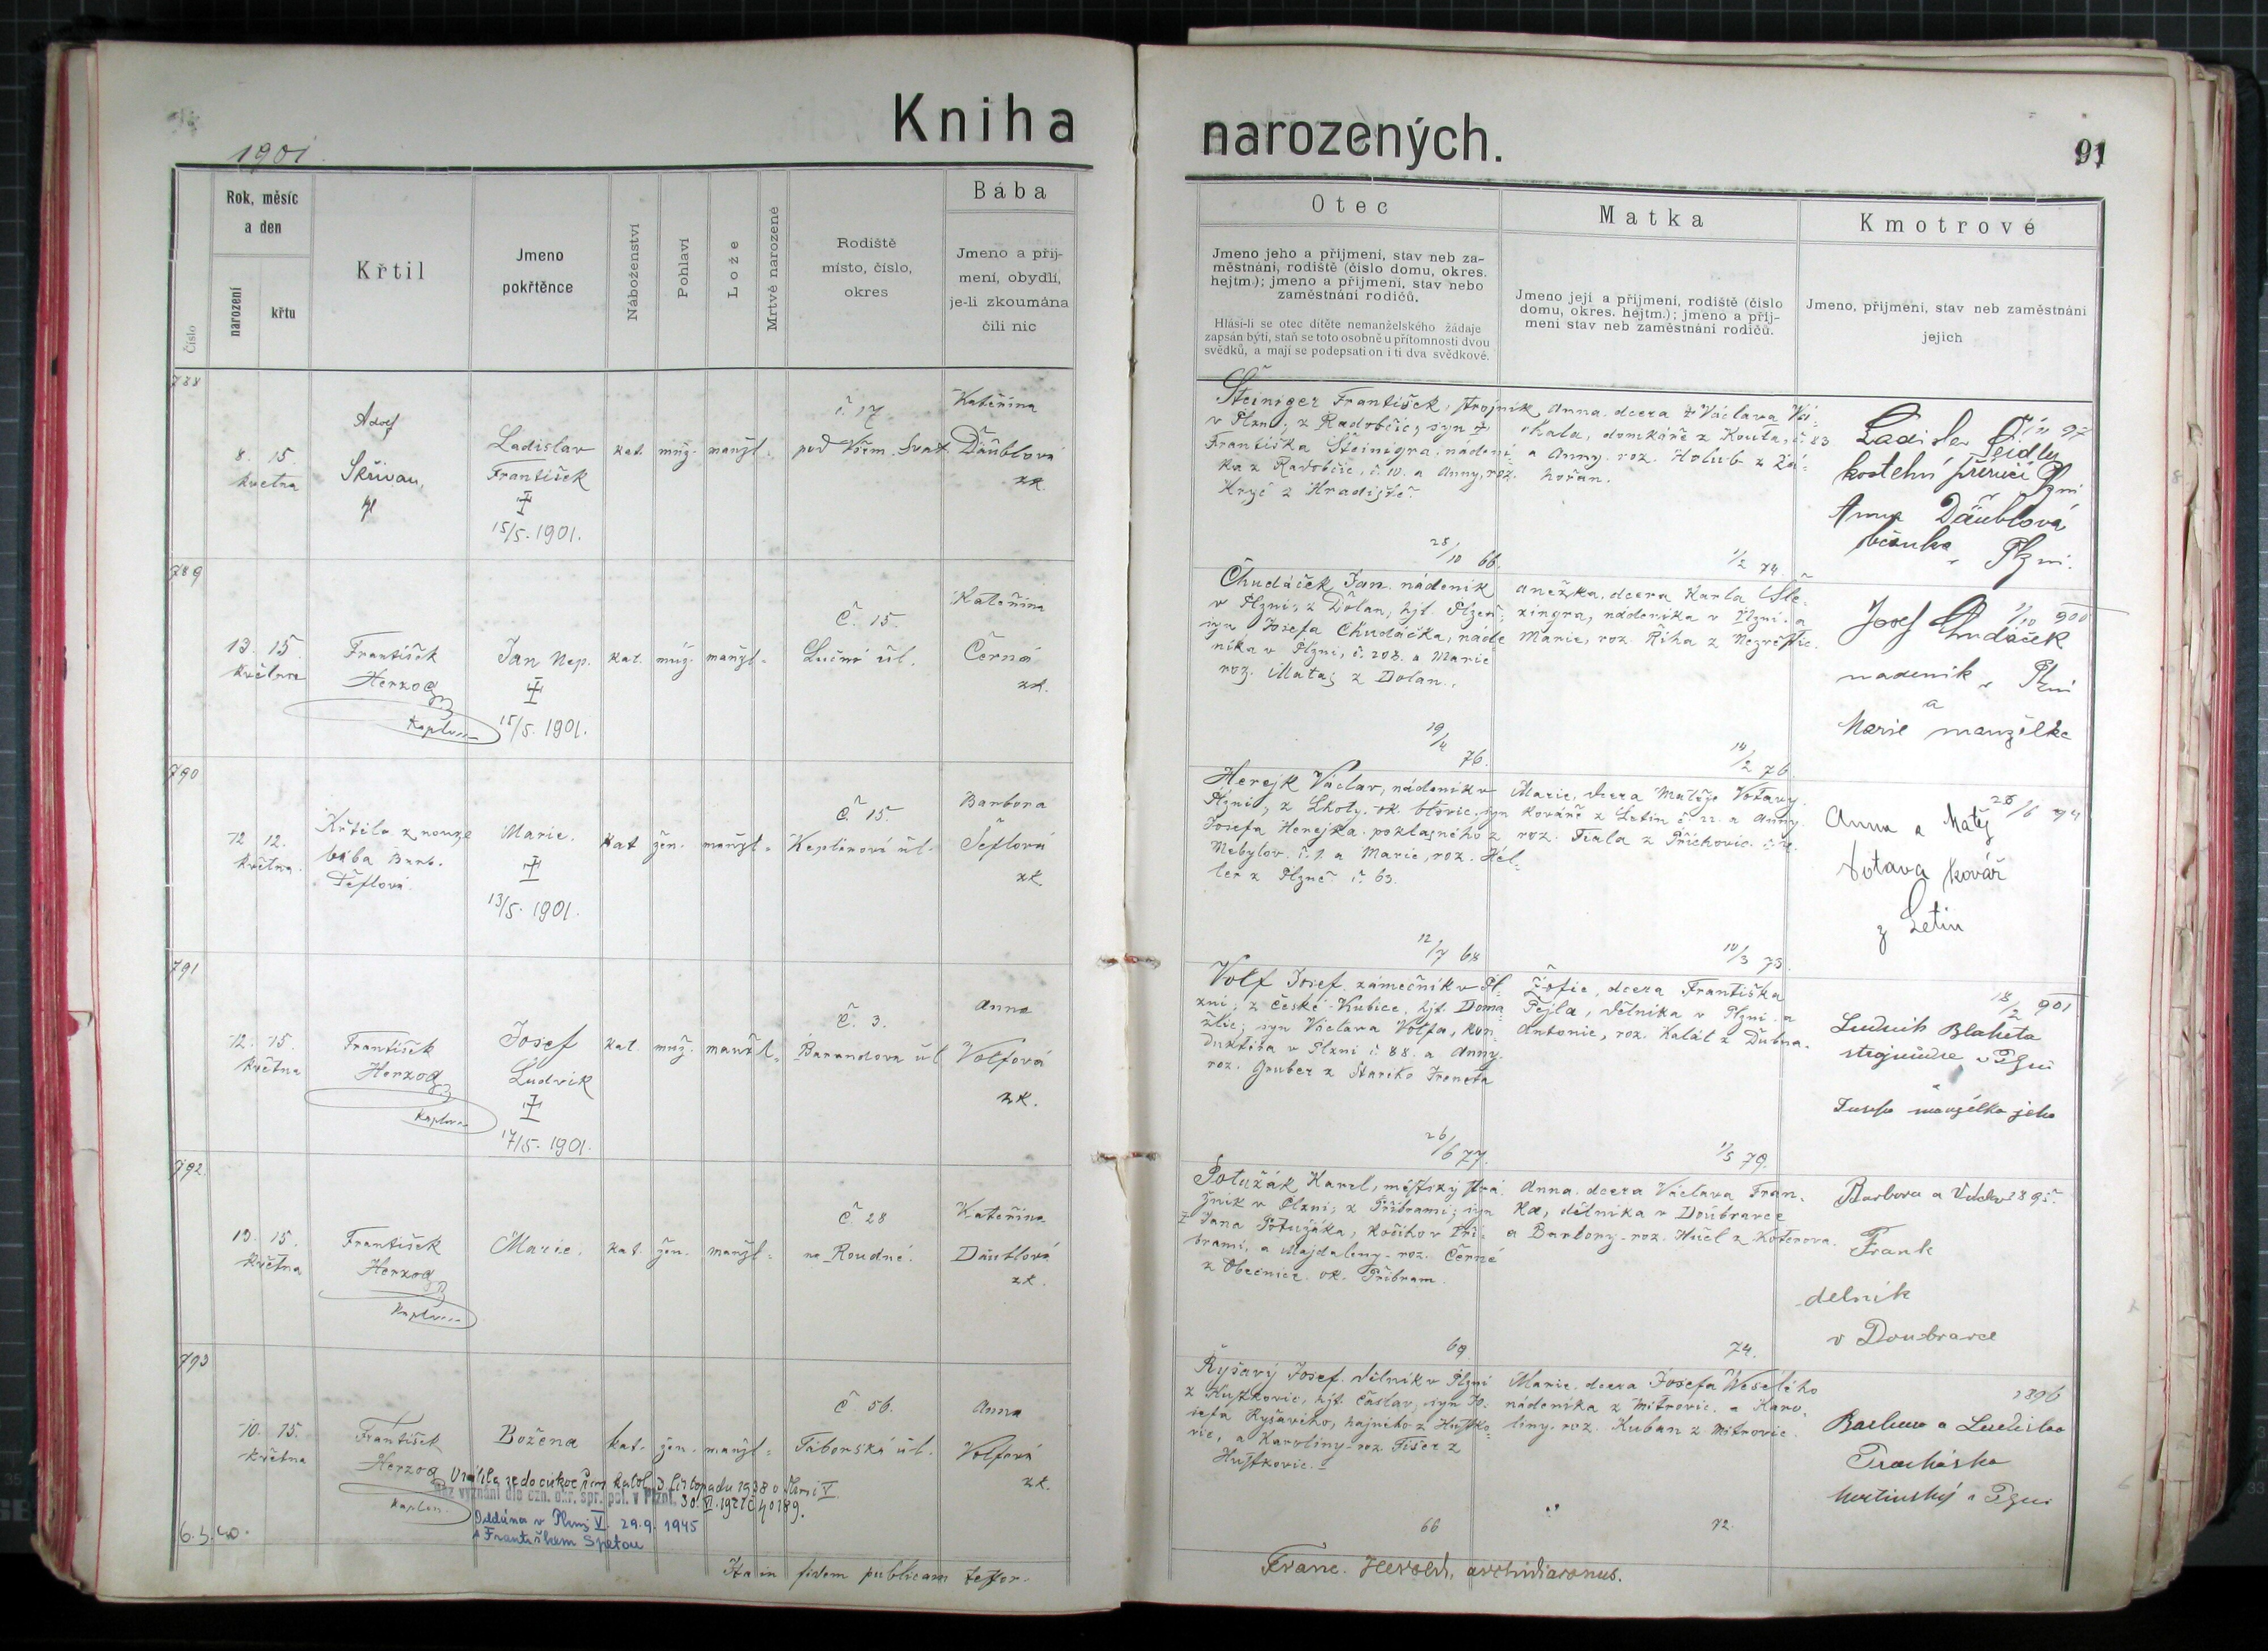 Kniha narozených.
1901.
91
Číslo
Rok, měsíc
a den
narození
křtu
Křtil
Jmeno
pokřtěnce
Náboženství
Pohlaví
Lože
Mrtvě narozené
Rodiště
místo, číslo,
okres
Bába
Jmeno a příj-
mení, obydlí,
je-li zkoumána
čili nic
Otec
Jmeno jeho a příjmení, stav neb za-
městnání, rodiště (číslo domu, okres.
hejtm.); jmeno a příjmení, stav nebo
zaměstnání rodičů.
Hlásí-li se otec dítěte nemanželského žádaje
zapsán býti, staň se toto osobně u přítomnosti dvou
svědků, a mají se podepsati on i ti dva svědkové.
Matka
Jmeno její a příjmení, rodiště (číslo
domu, okres. hejtm.); jmeno a příj-
mení stav neb zaměstnání rodičů.
Kmotrové
Jmeno, příjmení, stav neb zaměstnání
jejich
788
8. 15.
května
Adolf
Skřivan,
Ladislav
František
15/5. 1901.
kat. muž. manžl.
č. 17
pod Všem. Svat.
Kateřina
Däublová
zk.
Šteiniger František, strojník
v Plzni, z Radobčic, syn †
Františka Šteinigra, nádení-
ka z Radobčic, č. 10. a Anny, roz.
z Hradiště.
28/10 66.
Anna, dcera † Václava
domkáře z Kouta, č. 83
a Anny roz. Holub z Zá-
hořan.
1/2 74
Ladislav Seidl
kostelní Plzni
Anna Däublová
v Plzni.
789
13. 15.
května
František
Herzog
kaplan
Jan Nep.
15/5. 1901.
kat. muž. manžl.
Č. 15.
Lučné ul.
Kateřina
Černá
zk.
Chudáček Jan, nádeník
v Plzni, z Dolan, hjt. Plzeň;
syn Josefa Chudáčka, náde-
níka v Plzni, č. 208. a Marie
roz. Mataj z Dolan.
19/4 76.
Anežka, dcera Karla Šle-
zingra, nádeníka v Plzni a
Marie, roz. Říha z Nezvěstic.
14/2 76.
1/10 900
Josef Chudáček
nadeník v Plzni
a
Marie manželka
790
12 12.
května.
Křtila z nouze
bába Barb.
Šeflová.
Marie.
13/5. 1901.
kat žen. manžl.
Č. 15.
Keplerová ul.
Barbora
Šeflová
zk
Herejk Václav, nádeník v
Plzni, z Lhoty, ok. Blovic, syn
Josefa Herejka, z
č. 1. a Marie, roz. Hel-
ler z Plzně č. 63.
12/7 68
Marie, dcera Matěje Votavy
kováře z Letin č. 22. a Anny
roz. Fiala z Příchovic.
10/3 73.
Anna a Matěj
Votava kovář
z Letin
791
12. 15.
května
František
Herzog
kaplan
Josef
Ludvík
17/5. 1901.
kat. muž. manžl.
Č. 3.
Barandova ul
Anna
Volfová
zk.
Volf Josef, zámečník v Pl-
zni, z České Kubice, hjt. Doma-
žlic; syn Václava Volfa, kon-
duktéra v Plzni č. 88. a Anny
roz. Gruber z
26/6 77.
Žofie, dcera Františka
Pejla, dělníka v Plzni a
Antonie, roz. Kalát z Dubna.
1/5 79.
18/2 901
Ludvík Blaheta
v Plzni
a
manželka jeho
792
13. 15.
května
František
Herzog
kaplan
Marie.
kat. žen. manžl.
Č. 28
na Roudné.
Kateřina
Däublová
zk.
Potužák Karel, městský strá-
žník v Plzni, z Příbrami; syn
† Jana Potužáka, kočího v Pří-
brami, a Majdaleny roz. Černé
z Obecnice ok. Příbram.
69
Anna, dcera Václava Fran-
ka, dělníka v Doubravce
a Barbory roz. Hučl z Koterova.
74.
Barbora a Václav 1895.
Frank
delník
v Doubravce
793
10. 15.
května
František
Herzog
kaplan.
Božena
kat. žen. manžl.
Č. 56.
Táborská ul.
Anna
Volfová
zk.
Vrátila se do církve řím. katol. 3. listopadu 1938 v Plzni V.
Bez vyznání dle ozn. okr. spr. pol. v Plzni. 30. VI. 1921 č. 40189.
Oddána v Plzni V. 29.9. 1945
s Františkem Spetou
6.3.40.
Ryšavý Josef, dělník v Plzni
z Huskovic, hjt. Čáslav, syn Jo-
sefa Ryšavého, hajného z
a Karoliny roz. Fišer z
66
Marie, dcera Josefa Veselého
nádeníka z Mitrovic a Karo-
liny roz. Kuban z Mitrovic.
72
1896
a Ladislav
Procháska
v Plzni
Ita in fidem publicam testor.
Franc. Herold, archidiaconus.